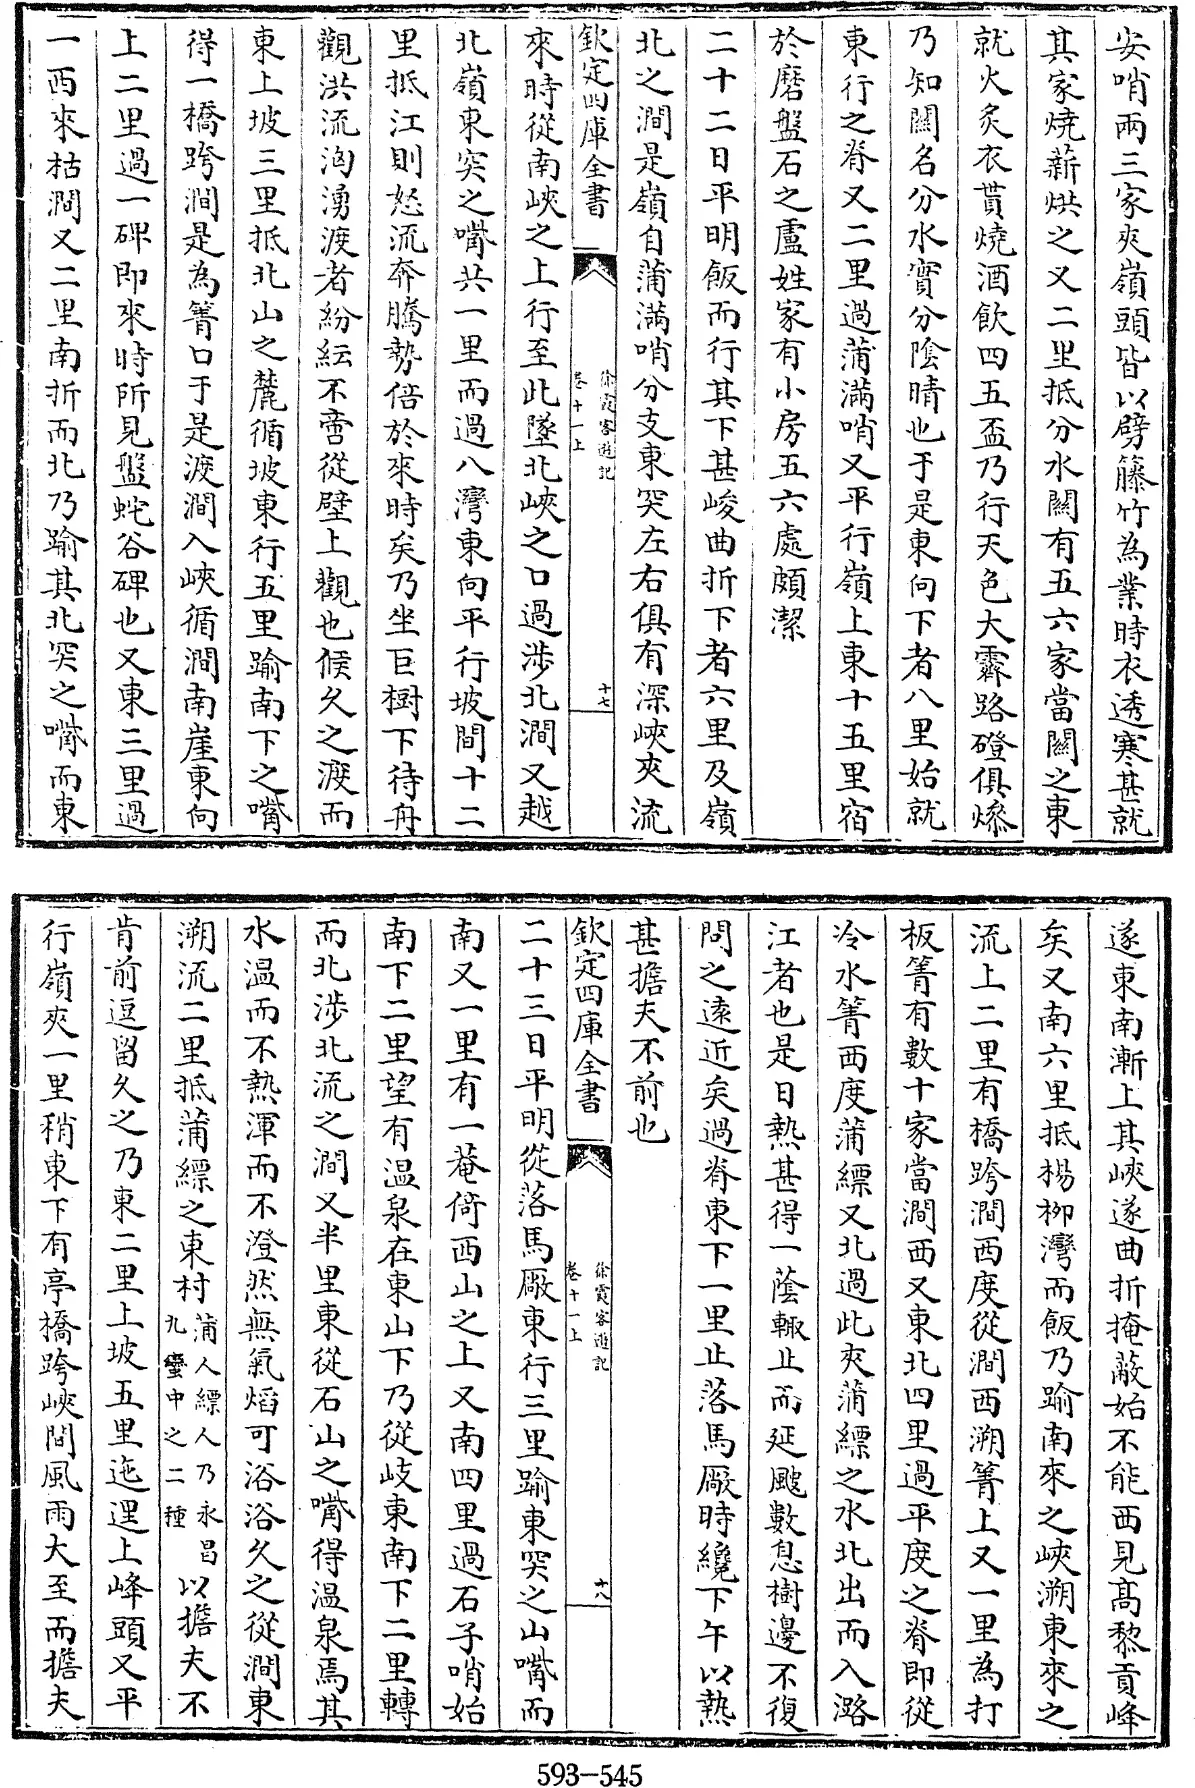 安哨兩三家夾嶺頭皆以劈籐竹為業時衣透寒甚就
其家燒薪烘之又二里抵分水關有五六家當關之東
就火炙衣貰燒酒飲四五盃乃行天色大霽路磴俱燥
乃知關名分水實分陰晴也于是東向下者八里始就
東行之脊又二里過蒲滿哨又平行嶺上東十五里宿
於磨盤石之盧姓家有小房五六處頗潔
二十二日平明飯而行其下甚峻曲折下者六里及嶺
北之澗是嶺自蒲滿哨分支東突左右俱有深峽夾流
欽定四庫全書
徐霞客遊記
卷十一上
十七
來時從南峽之上行至此墜北峽之口過涉北澗又越
北嶺東突之嘴共一里而過八灣東向平行坡間十二
里抵江則怒流奔騰勢倍於來時矣乃坐巨樹下待舟
觀洪流洶湧渡者紛紜不啻從壁上觀也候久之渡而
東上坡三里抵北山之麓循坡東行五里踰南下之嘴
得一橋跨澗是為箐口于是渡澗入峽循澗南崖東向
上二里過一碑即來時所見盤蛇谷碑也又東三里過
一西來枯澗又二里南折而北乃踰其北突之嘴而東
遂東南漸上其峽遂曲折掩蔽始不能西見髙黎貢峰
矣又南六里抵楊柳灣而飯乃踰南來之峽溯東來之
流上二里有橋跨澗西度從澗西溯箐上又一里為打
板箐有數十家當澗西又東北四里過平度之脊即從
冷水箐西度蒲縹又北過此夾蒲縹之水北出而入潞
江者也是日熱甚得一蔭輙止而延颸數息樹邊不復
問之遠近矣過脊東下一里止落馬廠時纔下午以熱
甚擔夫不前也
欽定四庫全書
徐霞客遊記
卷十一上
十八
二十三日平明從落馬廠東行三里踰東突之山嘴而
南又一里有一菴倚西山之上又南四里過石子哨始
南下二里望有温泉在東山下乃從岐東南下二里轉
而北涉北流之澗又半里東從石山之嘴得温泉焉其
水温而不熱渾而不澄然無氣熖可浴浴久之從澗東
溯流二里抵蒲縹之東村蒲人縹人乃永昌九蠻中之二種以擔夫不
肯前逗留久之乃東二里上坡五里迤邐上峰頭又平
行嶺夾一里稍東下有亭橋跨峽間風雨大至而擔夫
593-545